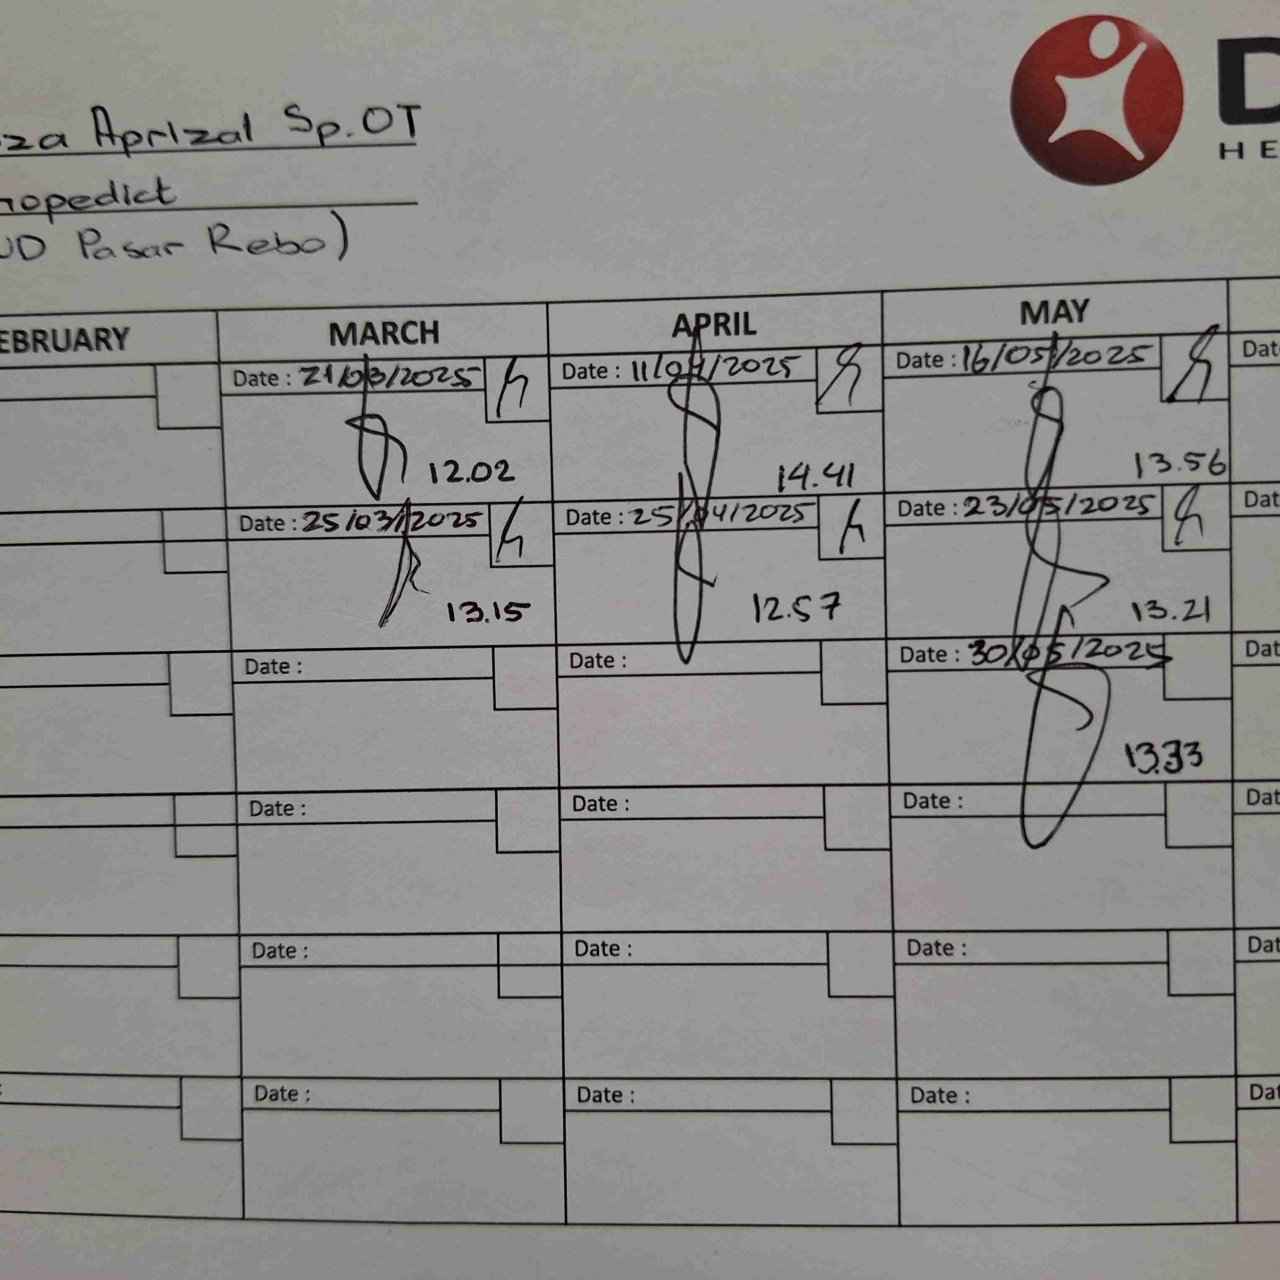 za Aprizal Sp.OT
hopedict
UD Pasar Rebo)
D
HE
EBRUARY MARCH APRIL MAY
Date : 21/03/2025 Date : 11/04/2025 Date : 16/05/2025 Dat
12.02 14.41 13.56
Date : 25/03/2025 Date : 25/04/2025 Date : 23/05/2025 Dat
13.15 12.57 13.21
Date : Date : Date : 30/05/2025 Dat
13.33
Date : Date : Date : Dat
Date : Date : Date : Dat
Date : Date : Date : Dat